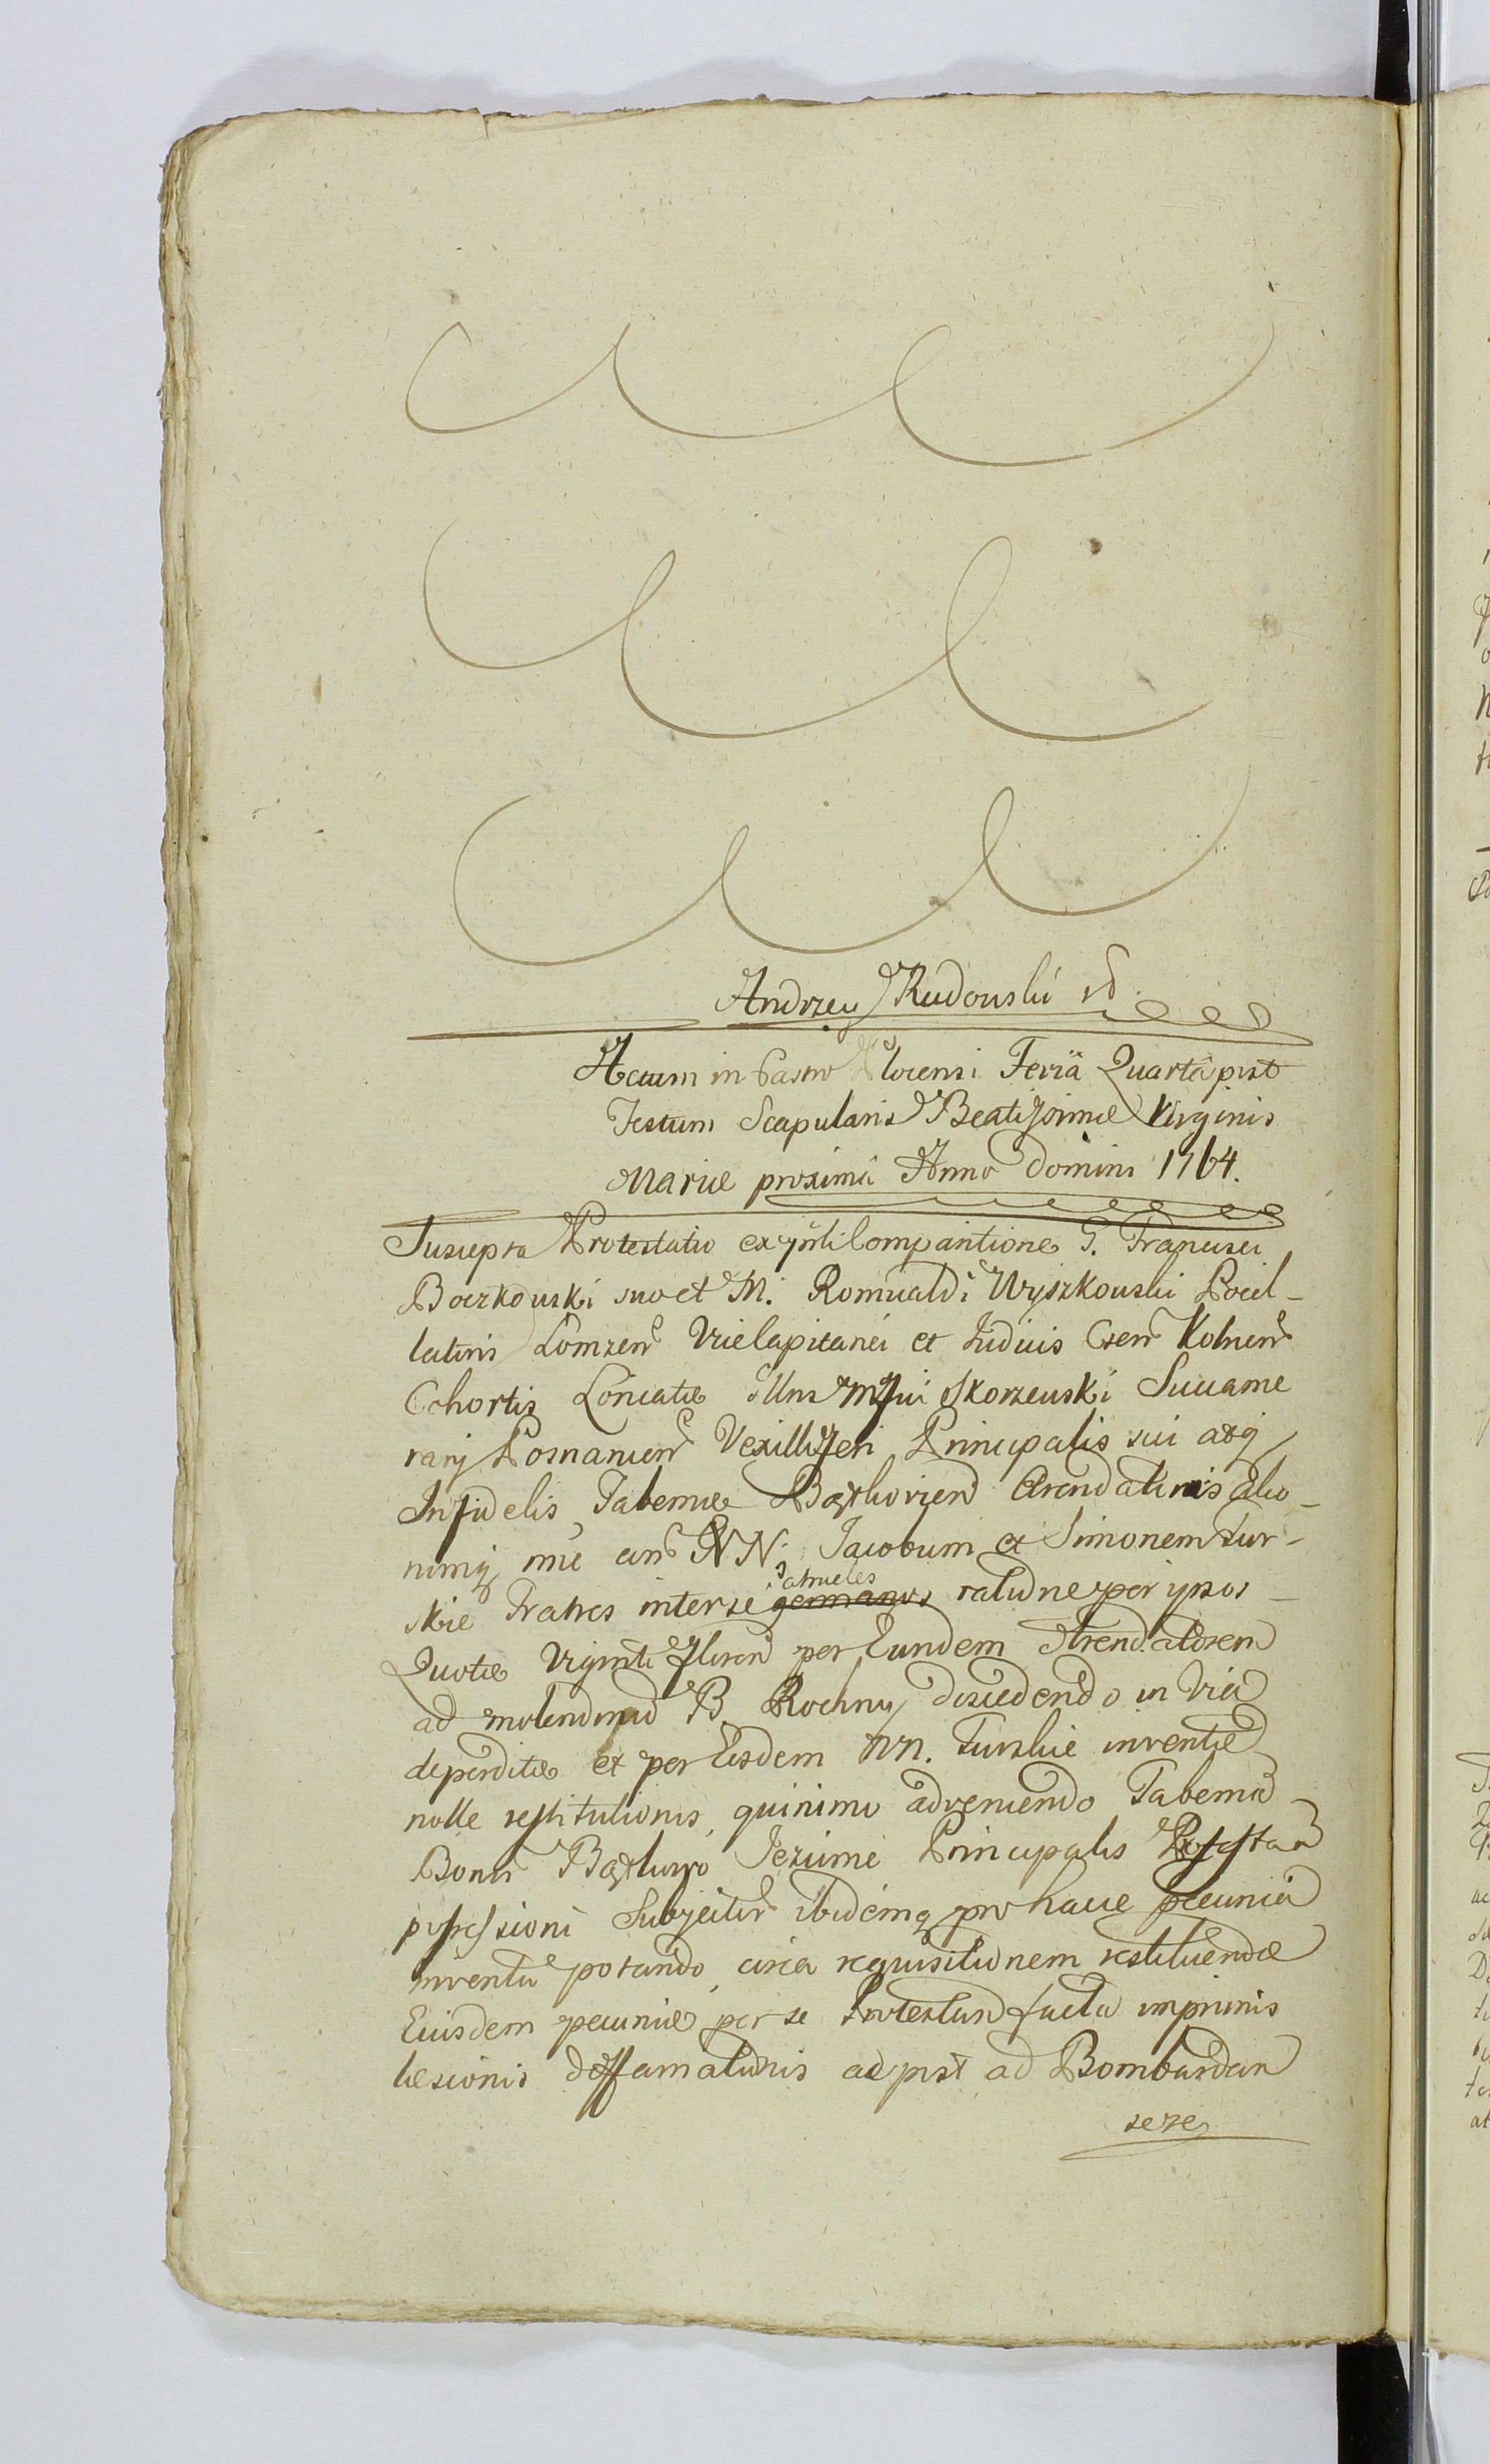 Andrzey Rudowski
Actum in Castro Plocensi Feria Quarta post
Festum Scapularis Beatissimæ Virginis
Mariæ proxima Anno Domini 1764.
Suscepta Protestatio ex G. Francisci
Boczkowski suo et M. Romualdi Wyszkowski Pocil-
latoris Łomzen Vicecapitanei et Judicis Csen Kolnen
Cohortis Loricatæ Illris Mgfici Skorzewski Succame
rarij Posnanien Vexilliferi Principalis sui atq
Infidelis Tabernæ Arendatoris
NN. Jacobum et Simonem Tur-
skie Fratres inter se patrueles ratione per ipsos
Quotæ Viginti floren per Eundem Arendatorem
ad molendinum B. Rochny discedendo in Via
deperditæ et per Eosdem NN. Turskie inventæ
nolle restitutionis, quinimo adveniendo Taberna
Bonis Principalis
possessioni Subjectis ibidemq pro hacce pecunia
inventa potando, circa requisitionem restituendæ
Eiusdem pecuniæ per se Protestan facta imprimis
læsionis deffamationis ac post ad Bombardan
sese